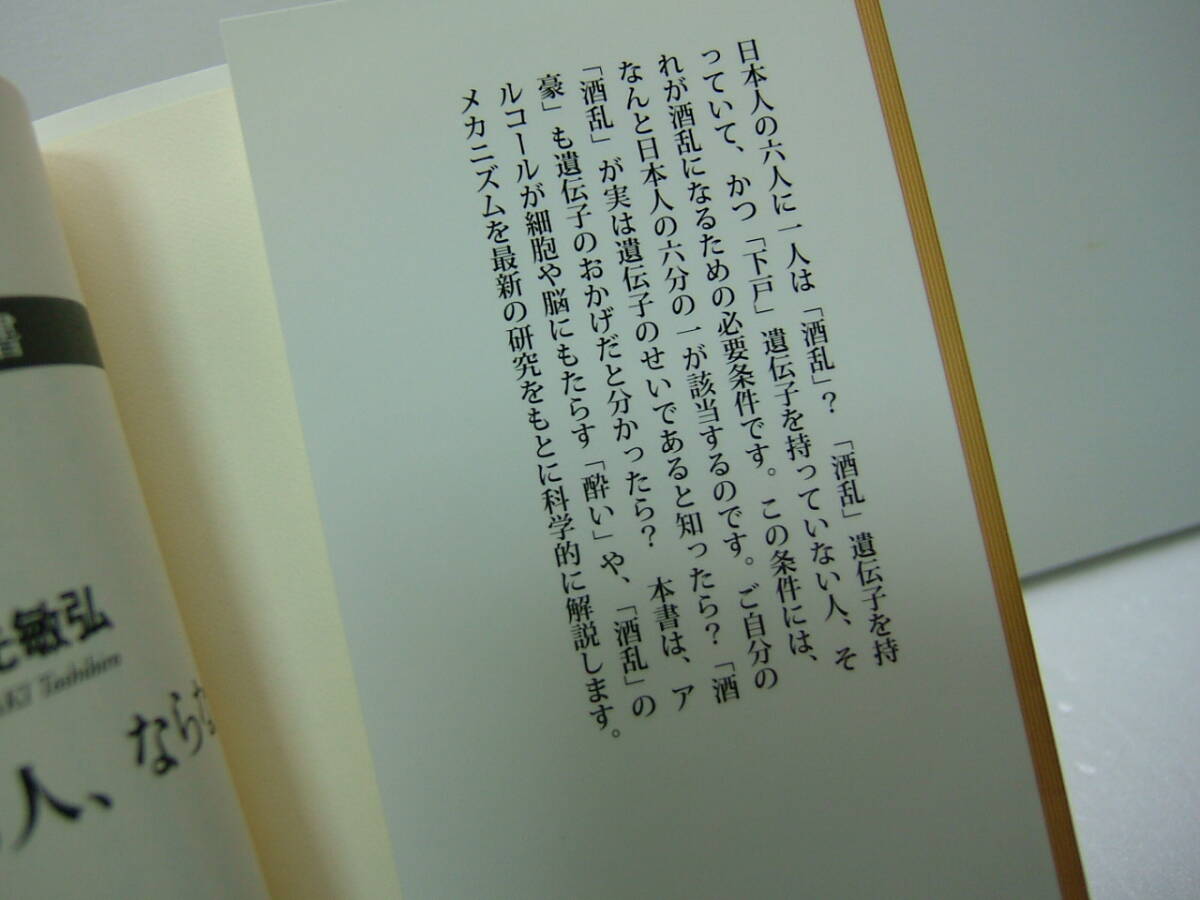 日本人の六人に一人は「酒乱」？　「酒乱」遺伝子を持
っていて、かつ「下戸」遺伝子を持っていない人、そ
れが酒乱になるための必要条件です。この条件には、
なんと日本人の六分の一が該当するのです。ご自分の
「酒乱」が実は遺伝子のせいであると知ったら？「酒
豪」も遺伝子のおかげだと分かったら？　本書は、ア
ルコールが細胞や脳にもたらす「酔い」や、「酒乱」の
メカニズムを最新の研究をもとに科学的に解説します。
書
敏弘
Toshihiro
人、なら